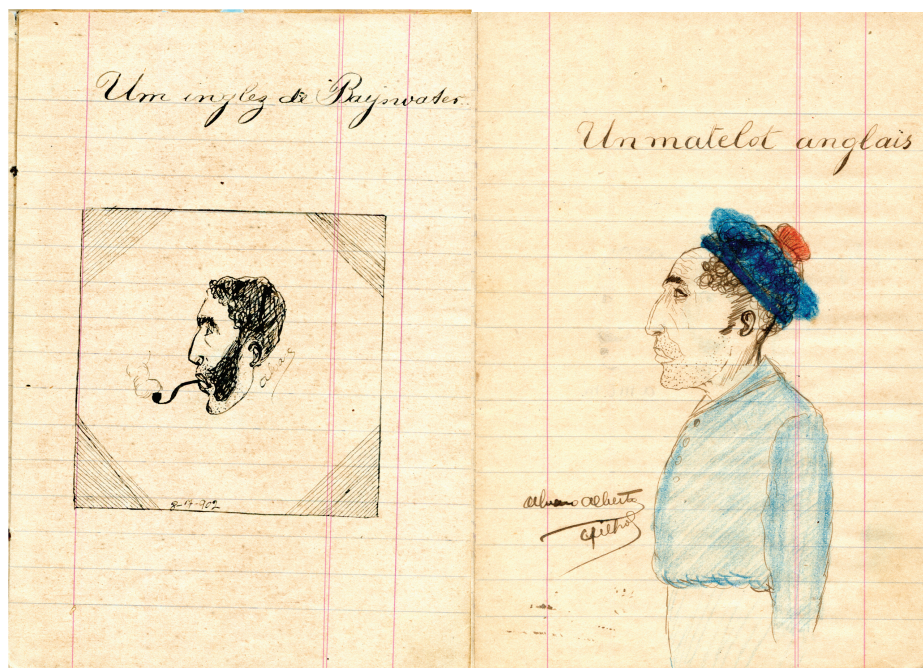 Um inglez de Bayswater.
8-17-902
Un matelot anglais
Alvaro Alberto
filho